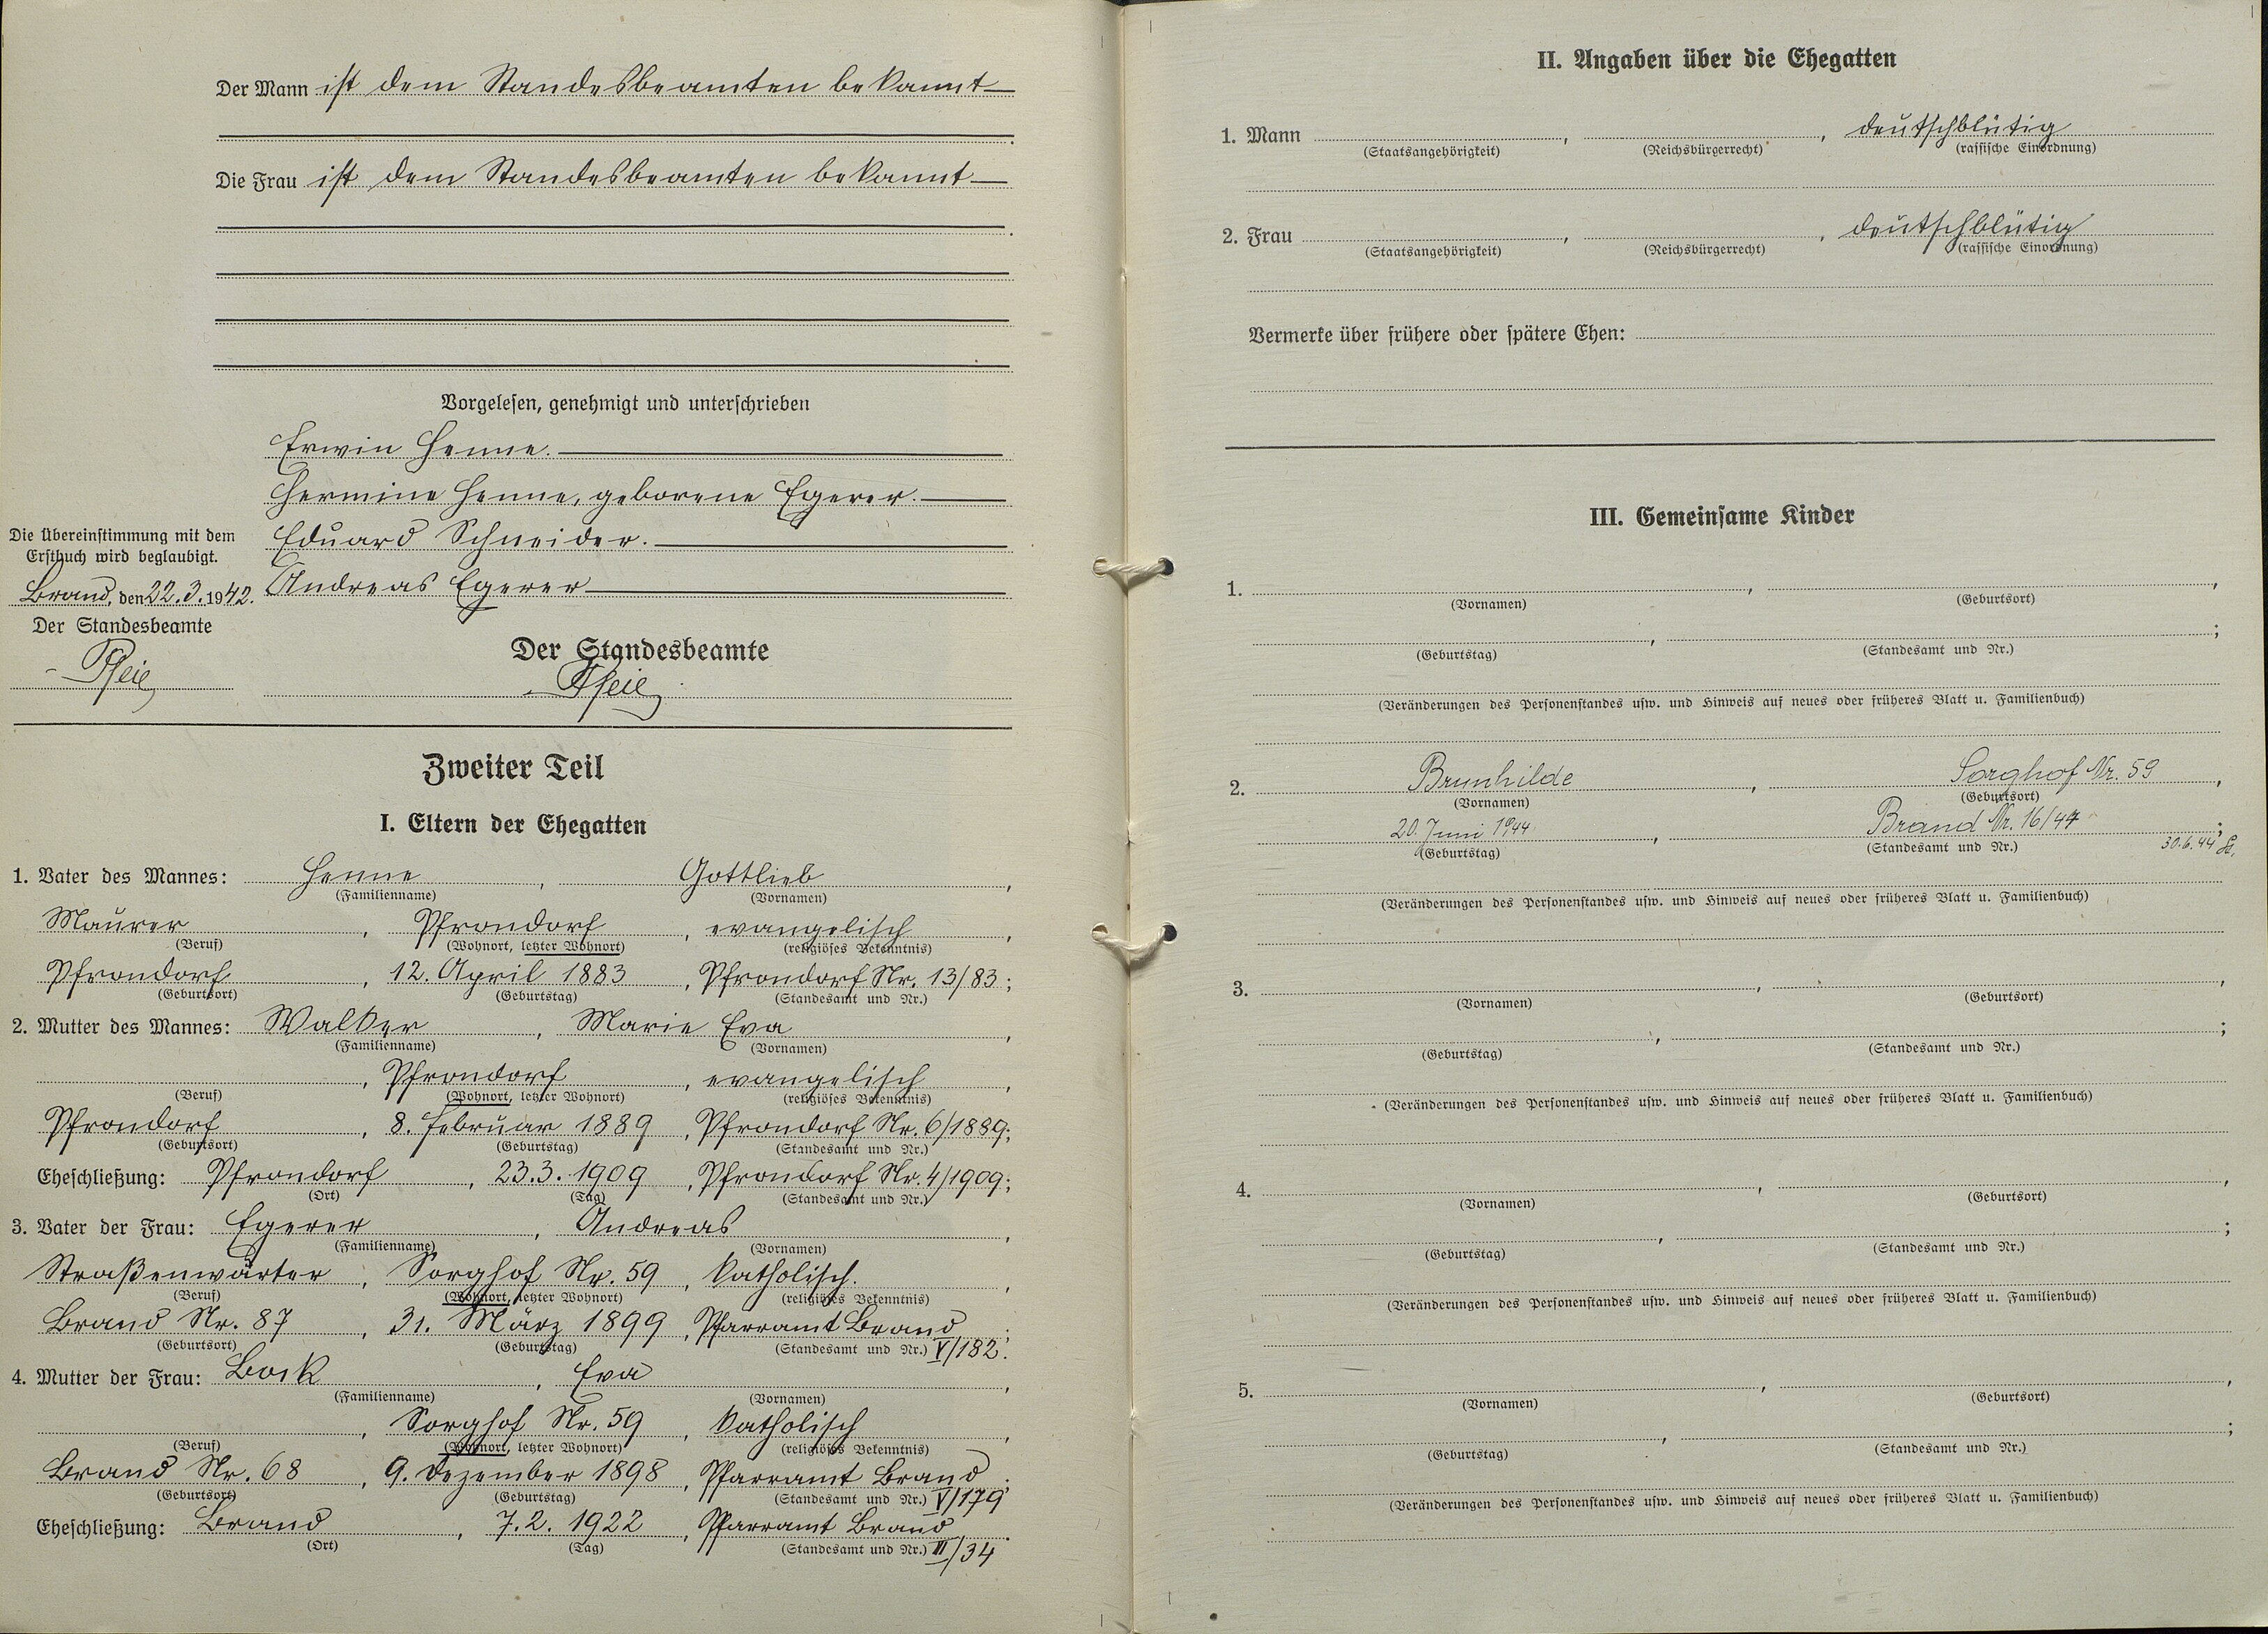 Der Mann ist dem Standesbeamten bekannt
Die Frau ist dem Standesbeamten bekannt
Vorgelesen, genehmigt und unterschrieben
Erwin Henne.
Hermine Henne, geborene Egerer.
Eduard Schneider.
Andreas Egerer
Die Übereinstimmung mit dem
Erstbuch wird beglaubigt.
Brand, den 22.3.1942.
Der Standesbeamte
Der Standesbeamte
Zweiter Teil
I. Eltern der Ehegatten
1. Vater des Mannes: Henne, Gottlieb,
(Familienname) (Vornamen)
Maurer, Pfrondorf, evangelisch,
(Beruf) (Wohnort, letzter Wohnort) (religiöses Bekenntnis)
Pfrondorf, 12. April 1883, Pfrondorf Nr. 13/83;
(Geburtsort) (Geburtstag) (Standesamt und Nr.)
2. Mutter des Mannes: Walker, Marie Eva,
(Familienname) (Vornamen)
, Pfrondorf, evangelisch,
(Beruf) (Wohnort, letzter Wohnort) (religiöses Bekenntnis)
Pfrondorf, 8. Februar 1889, Pfrondorf Nr. 6/1889;
(Geburtsort) (Geburtstag) (Standesamt und Nr.)
Eheschließung: Pfrondorf, 23.3.1909, Pfrondorf Nr. 4/1909;
(Ort) (Tag) (Standesamt und Nr.)
3. Vater der Frau: Egerer, Andreas,
(Familienname) (Vornamen)
Straßenwärter, Sorghof Nr. 59, katholisch.,
(Beruf) (Wohnort, letzter Wohnort) (religiöses Bekenntnis)
Brand Nr. 87, 31. März 1899, Pfarramt Brand;
(Geburtsort) (Geburtstag) (Standesamt und Nr.) V/182.
4. Mutter der Frau: Bock, Eva,
(Familienname) (Vornamen)
, Sorghof Nr. 59, katholisch,
(Beruf) (Wohnort, letzter Wohnort) (religiöses Bekenntnis)
Brand Nr. 68, 9. Dezember 1898, Pfarramt Brand;
(Geburtsort) (Geburtstag) (Standesamt und Nr.) V/179
Eheschließung: Brand, 7.2.1922, Pfarramt Brand.
(Ort) (Tag) (Standesamt und Nr.) III/34
II. Angaben über die Ehegatten
1. Mann , , deutschblütig
(Staatsangehörigkeit) (Reichsbürgerrecht) (rassische Einordnung)
2. Frau , , deutschblütig
(Staatsangehörigkeit) (Reichsbürgerrecht) (rassische Einordnung)
Vermerke über frühere oder spätere Ehen:
III. Gemeinsame Kinder
1. , ,
(Vornamen) (Geburtsort)
, ;
(Geburtstag) (Standesamt und Nr.)
(Veränderungen des Personenstandes usw. und Hinweis auf neues oder früheres Blatt u. Familienbuch)
2. Brunhilde, Sorghof Nr. 59,
(Vornamen) (Geburtsort)
20. Juni 1944, Brand Nr. 16/44;
(Geburtstag) (Standesamt und Nr.) 30.6.44
(Veränderungen des Personenstandes usw. und Hinweis auf neues oder früheres Blatt u. Familienbuch)
3. , ,
(Vornamen) (Geburtsort)
, ;
(Geburtstag) (Standesamt und Nr.)
(Veränderungen des Personenstandes usw. und Hinweis auf neues oder früheres Blatt u. Familienbuch)
4. , ,
(Vornamen) (Geburtsort)
, ;
(Geburtstag) (Standesamt und Nr.)
(Veränderungen des Personenstandes usw. und Hinweis auf neues oder früheres Blatt u. Familienbuch)
5. , ,
(Vornamen) (Geburtsort)
, ;
(Geburtstag) (Standesamt und Nr.)
(Veränderungen des Personenstandes usw. und Hinweis auf neues oder früheres Blatt u. Familienbuch)